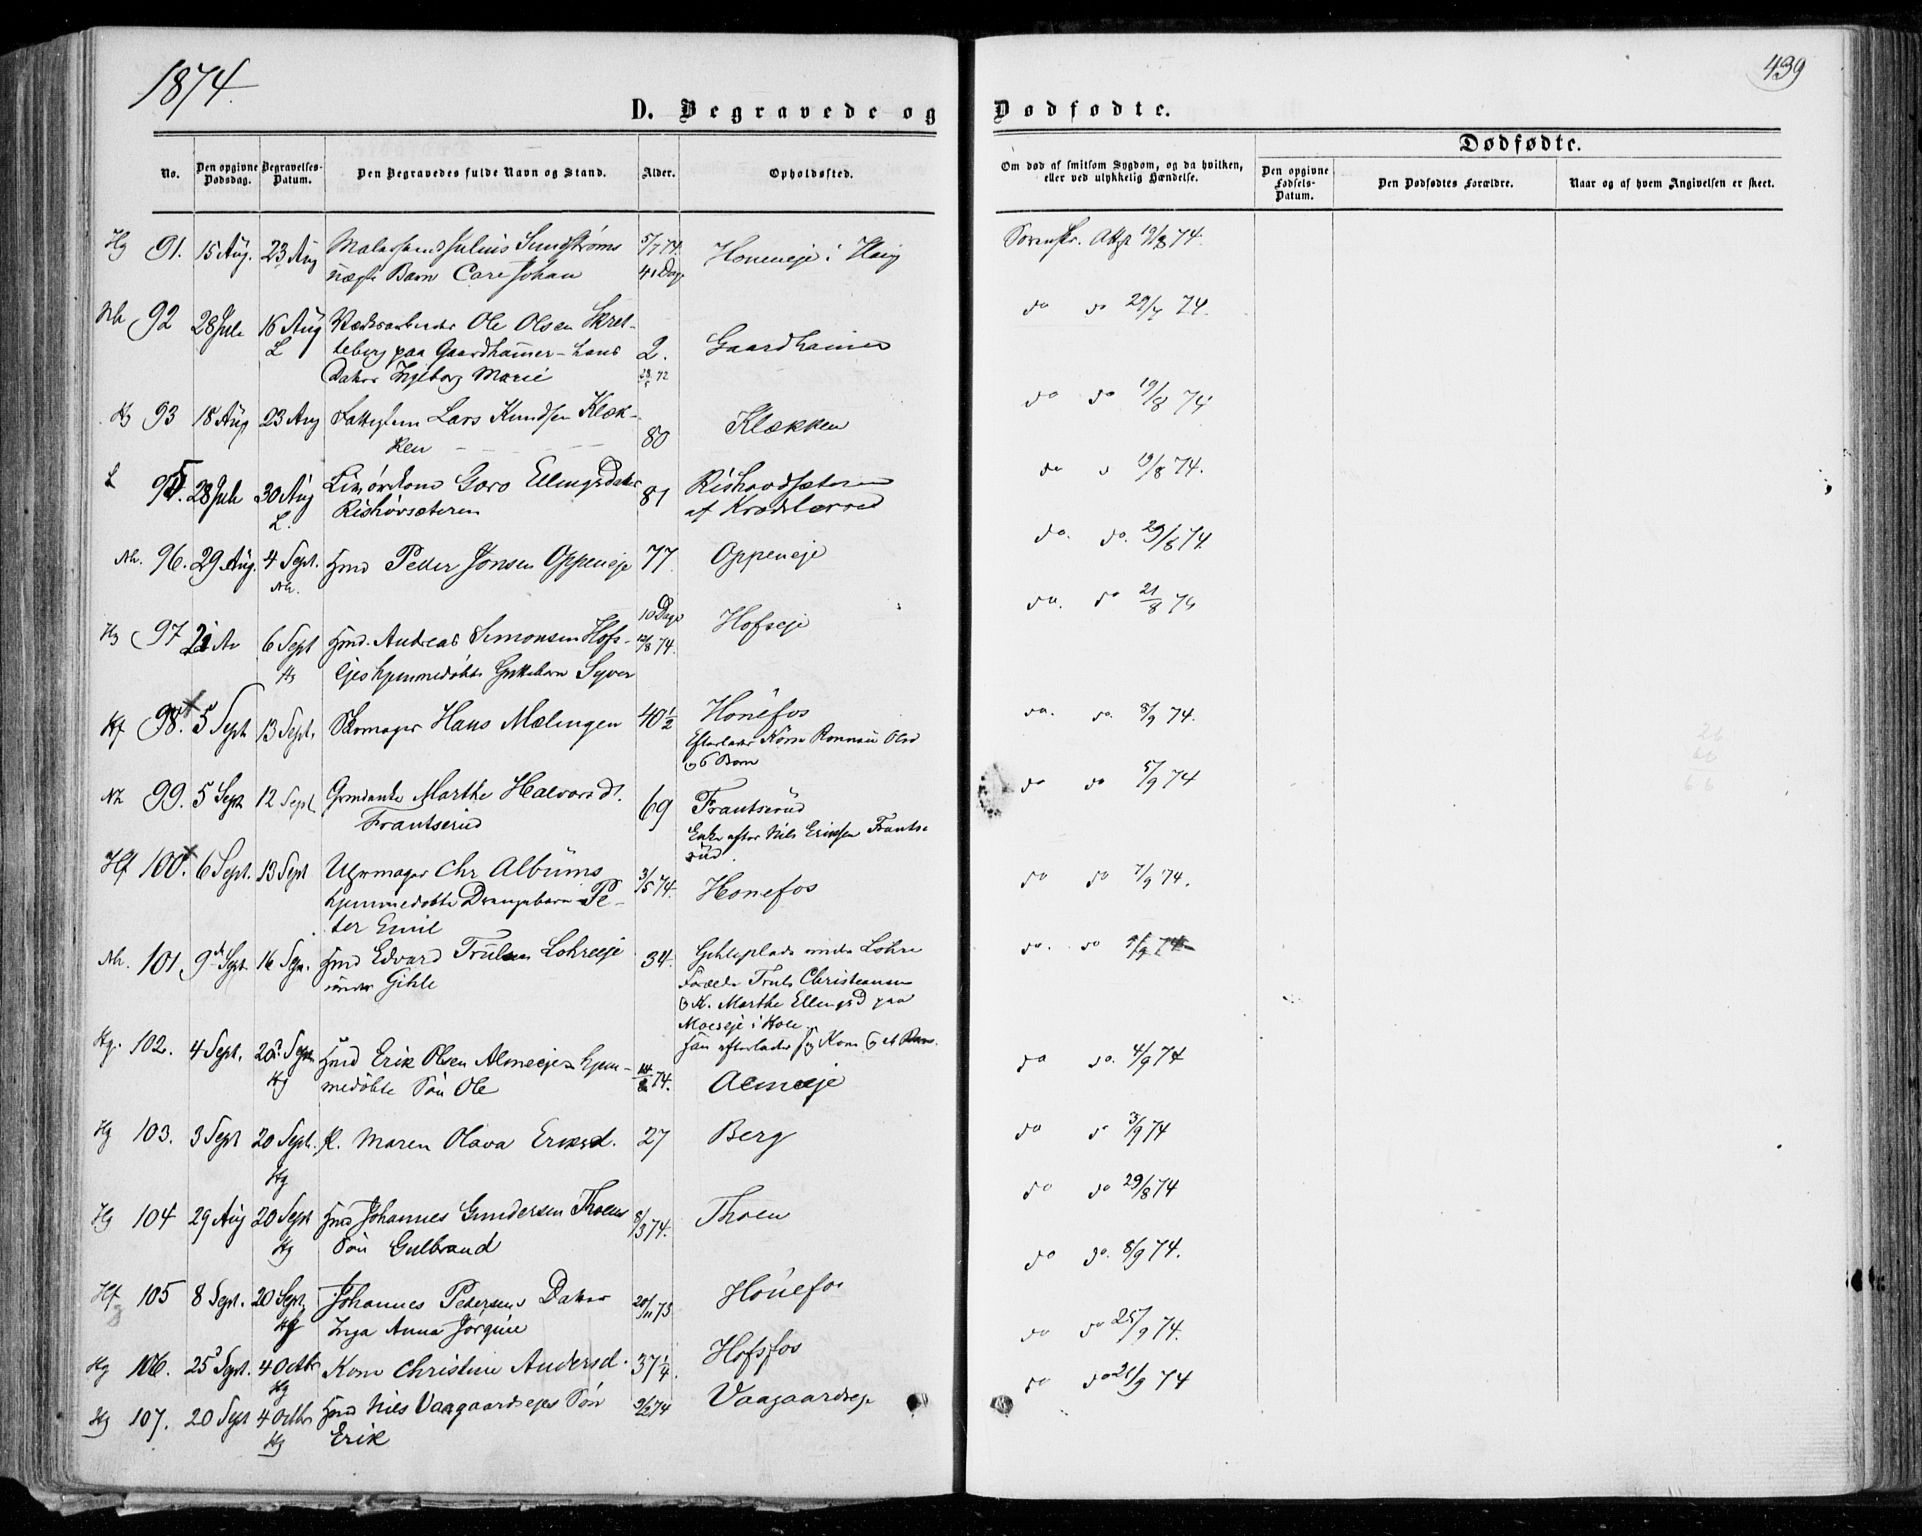 1874.
439
D. Begravede og Dødfødte.
No.
Den opgivne Dødsdag.
Begravelses-Datum.
Den Begravedes fulde Navn og Stand.
Alder.
Opholdssted.
Om død af smitsom Sygdom, og da hvilken, eller ved ulykkelig Hændelse.
Dødfødte.
Den opgivne Fødsels-Datum.
Den Dødfødtes Forældre.
Naar og af hvem Angivelsen er skeet.
Hg 91. 15 Aug. 23 Aug Julius Sundstrøms 5/7 74. Honeneje i Haug 19/8 74.
Barn Carl Johan 41 Dage
Nh 92 28 Juli 16 Aug Ole Olsen Skret- Gaardhamer do do 29/7 74.
L teberg paa Gaardhamer - hans 2.
Datter Ingeborg Marie 28/5 72
Hg 93 18 Aug 23 Aug Lars Knudsen Klæk- Klækken do do 19/8 74
ken 80
L 95. 28 Juli 30 Aug Goro Ellingsdatter 81 do 19/8 74.
L. af Krødsherred
Nh. 96. 29 Aug. 4 Sept. Hmd Peder Jonsen Oppeneje 77. Oppeneje do. do. 29/8 74.
Nh.
Hg 97 6 Sept Hmd. Andreas Simonsen Hofs- 10 Dage 12/8 74. Hofseje do. do 21/8 74
Hg ejes hjemmedøbte Syver
Hf 98. 5 Sept 13 Sept. Skomager Hans Mælingen 40 1/2 Hönefos do. do. 8/9 74.
Efterlader Kone Olsd
og 6 Børn
Nh 99. 5 Sept 12 Sept. Marthe Halvorsdt. 69 Frantserud do do 5/9 74
Frantserud
Enke efter Nils Eriksen Frantse
rud.
Hf 100. 6 Sept. 13 Sept Uhrmager Chr Albums 3/5 74. Hönefos do do 7/9 74.
hjemmedøbte Drengebarn Pe-
ter Emil
Nh. 101. 9de Sept. 16 Sept. Hmd Edvard Trulsen Lohreeje 34. Gihleplads under Lohre do. do 9/9 74
under Gihle
Truls Christiansen
og K. Marthe Ellingsd paa
Moeseje i Hole.
han efterlader sig Kone og et Barn.
Hg. 102. 4 Sept. 20 Sept. Hmd Erik Olsen Almeejes hjem- 74. Almeeje do do. 4/9 74
Hg medøbte Søn Ole
Hg 103. 3 Sept 20 Sept. P. Maren Olava Eriksd. 27 Berg do do 3/9 74
Hg
Hg 104 29 Aug 20 Sept Hmd Johannes Gundersen Thoens 8/3 74. Thoen do do 29/8 74
Hg Søn Gulbrand
Hf 105 8 Sept. 20 Sept. Johannes Pedersens Datter 20/11 73 Hönefos do do. 8/9 74.
Hg Inga Anna Jørgine
Hg 106. 25 Sept. 4 Octbr Kone Christine Andersd. 37 1/4. Hofsfos do do 25/9 74.
Hg
Hg 107. 20 Sept 4 Octbr Hmd Nils Vaagaardsejes Søn 9/6 74 Vaagaardseje do do 21/9 74
Hg Erik